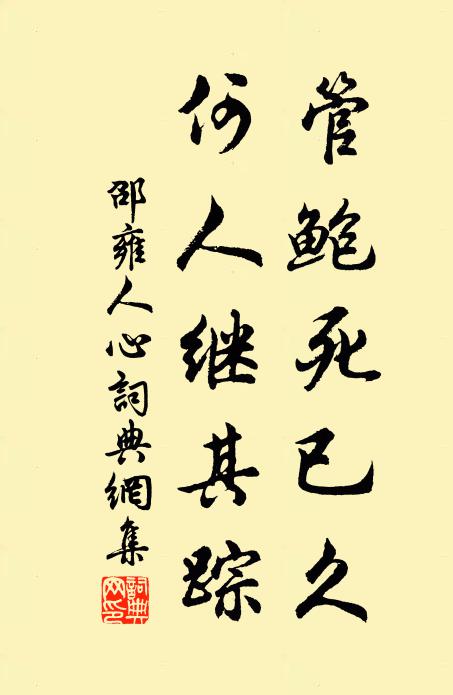 管鲍死已久
何人继其踪
邵雍人心詞典網集
詞典
网印